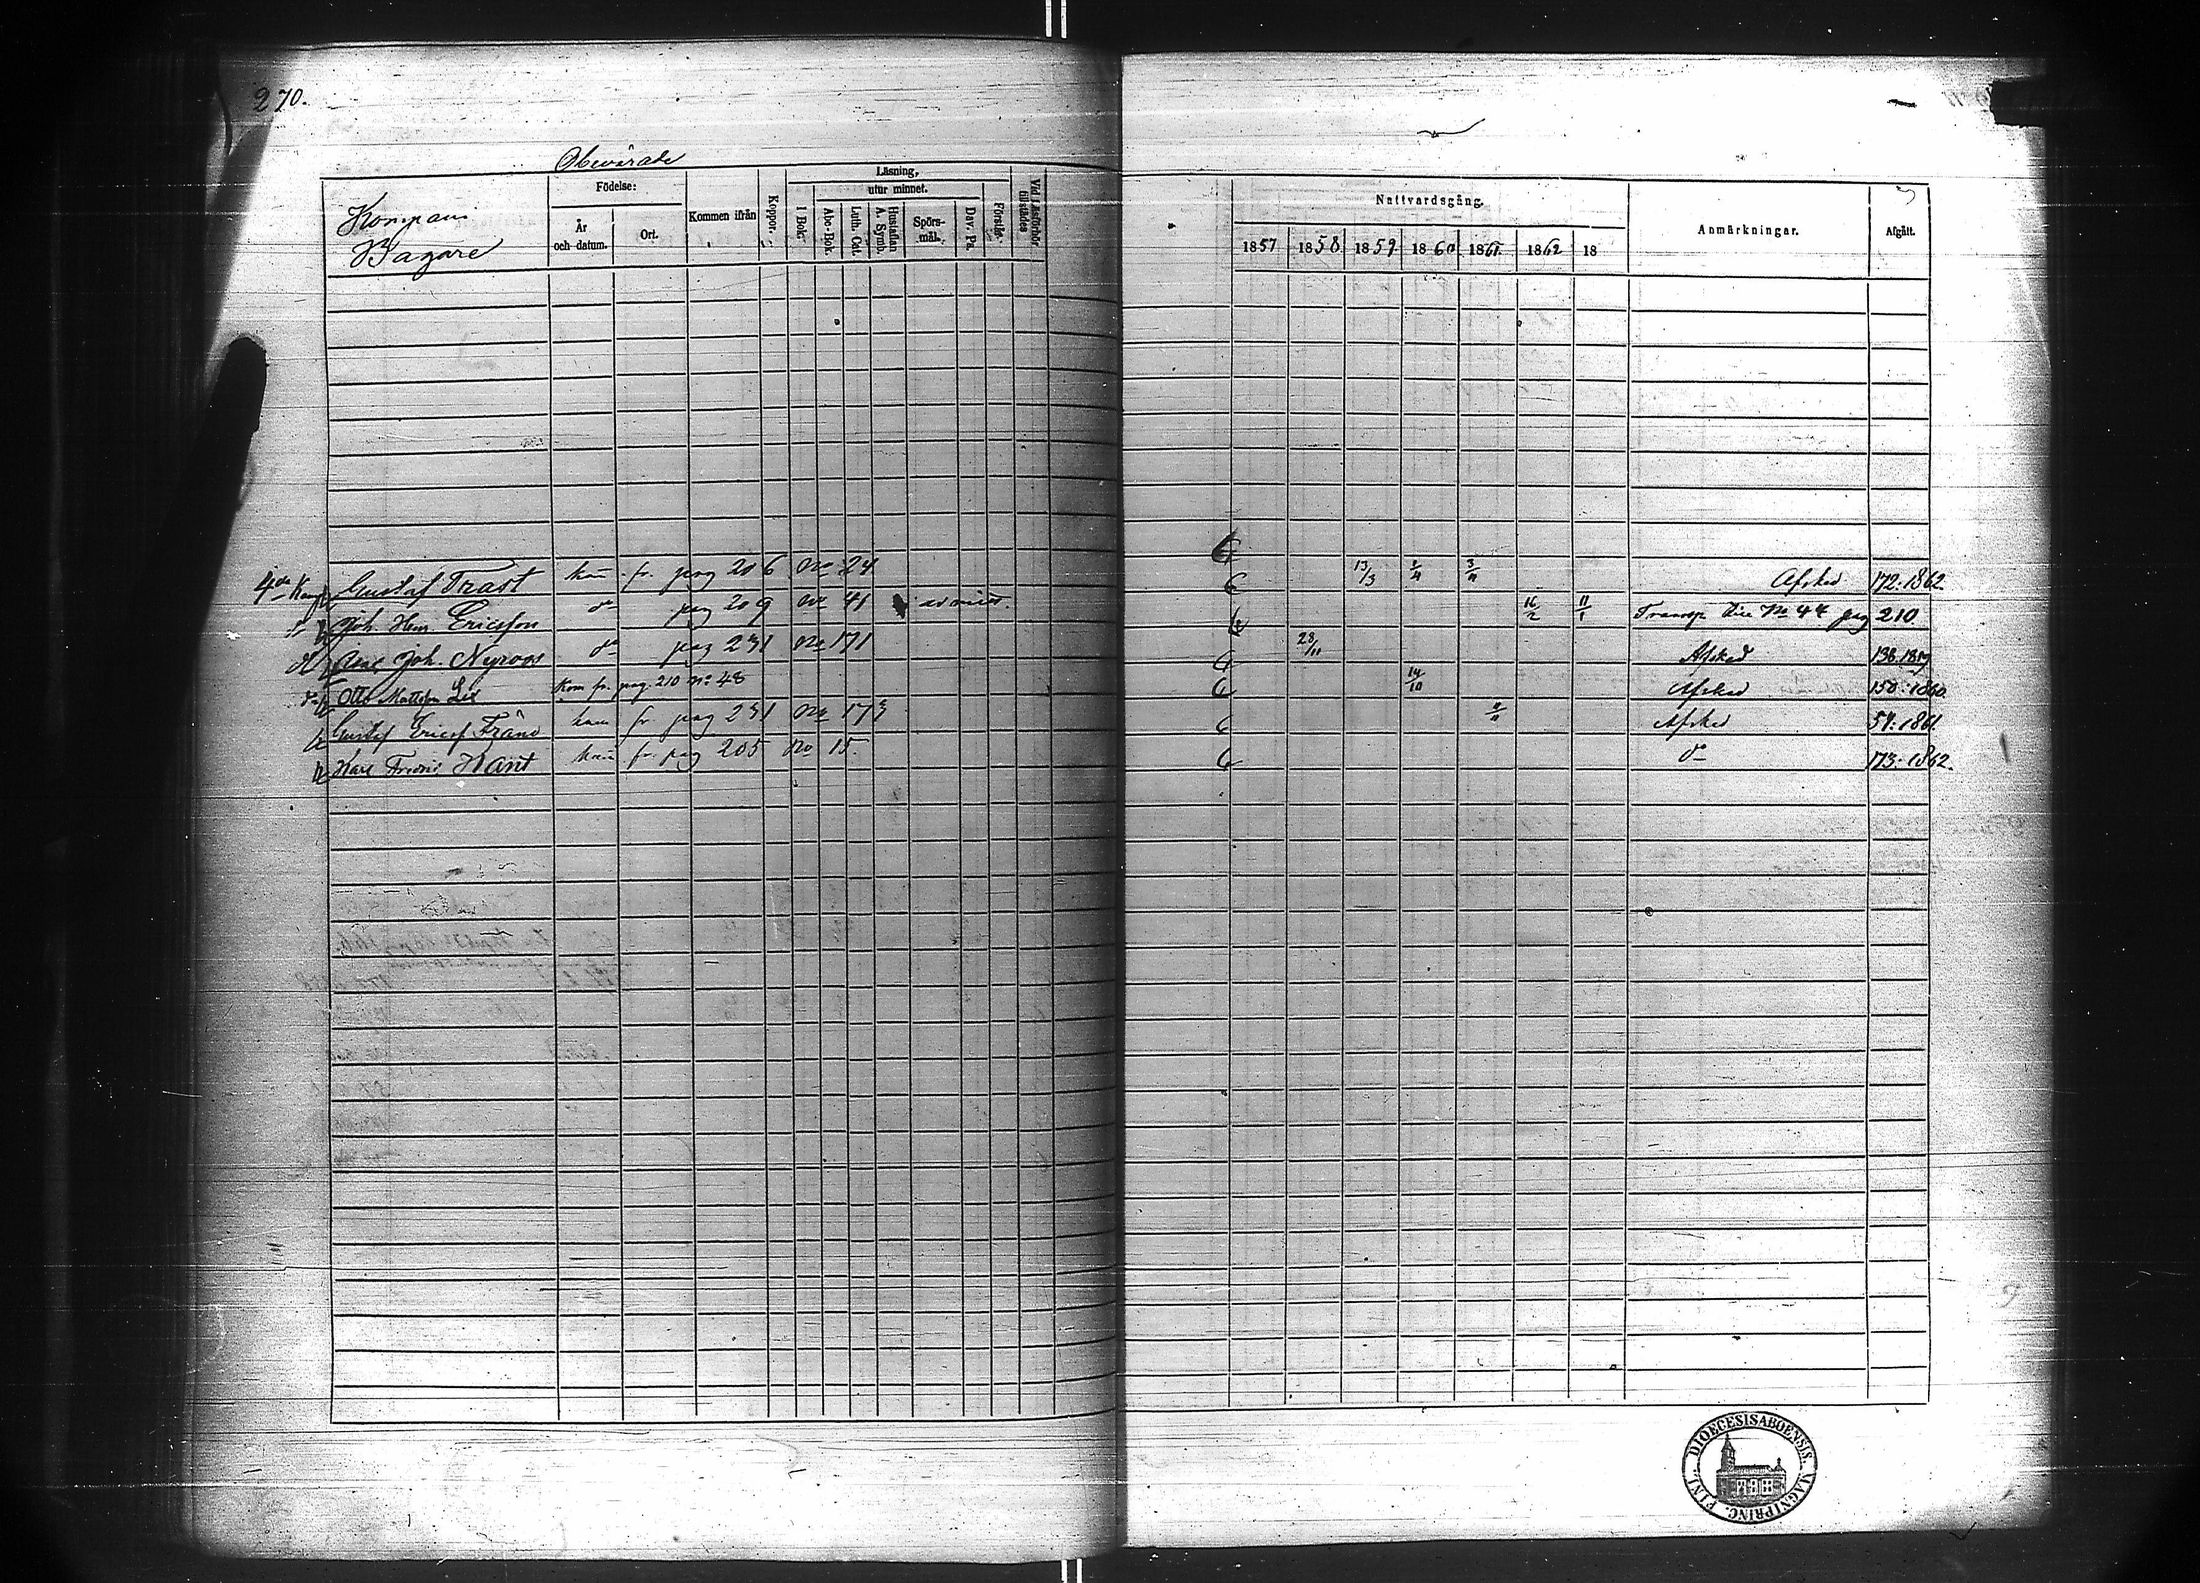 270.
Obevärade
Kompani
Bagare
Födelse:
År och datum.
Ort.
Kommen ifrån
Koppor.
Läsning,
I Bok.
utur minnet.
Abc-Bok.
Luth. Cat.
Hustaflan A. Symb.
Spörsmål.
Dav. Ps.
Förstår.
Vid Läsförhör tillstädes
Nattvardsgång.
1857 1858 1859 1860 1861 1862 18
Anmärkningar.
Afgått.
4de Komp Gustaf Trast kom fr. pag 206 No 24 13/3 3/11 Afsked 172:1862.
Joh Hen Ericsson do pag 209 No 41 16/2 11/1 Transp. No 44 pag 210
Joh. Nyroos do pag 231 No 171 28/11 Afsked
Otto Mattsson Kom fr. pag. 210 No 48 14/10 Afsked 150:1860.
Gustaf Ericsf kom fr pag 231 No 173 Afsked 54:1861.
Karl Fredric Hant kom fr. pag 205 No 15. do 173:1862.
DIOECESIS ABOENSIS. MAGNI PRINC. FINL.